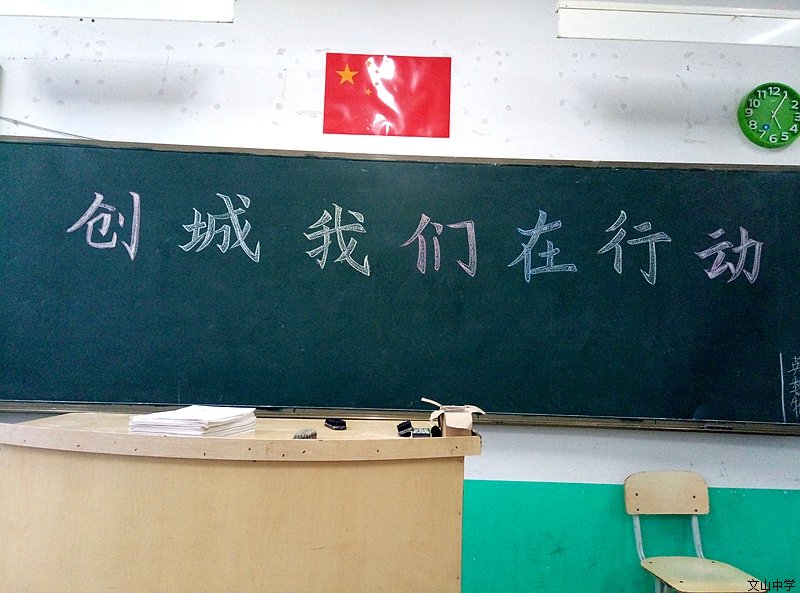 创城我们在行动
12
1
2
3
4
5
6
7
8
9
10
11
英
文山中学